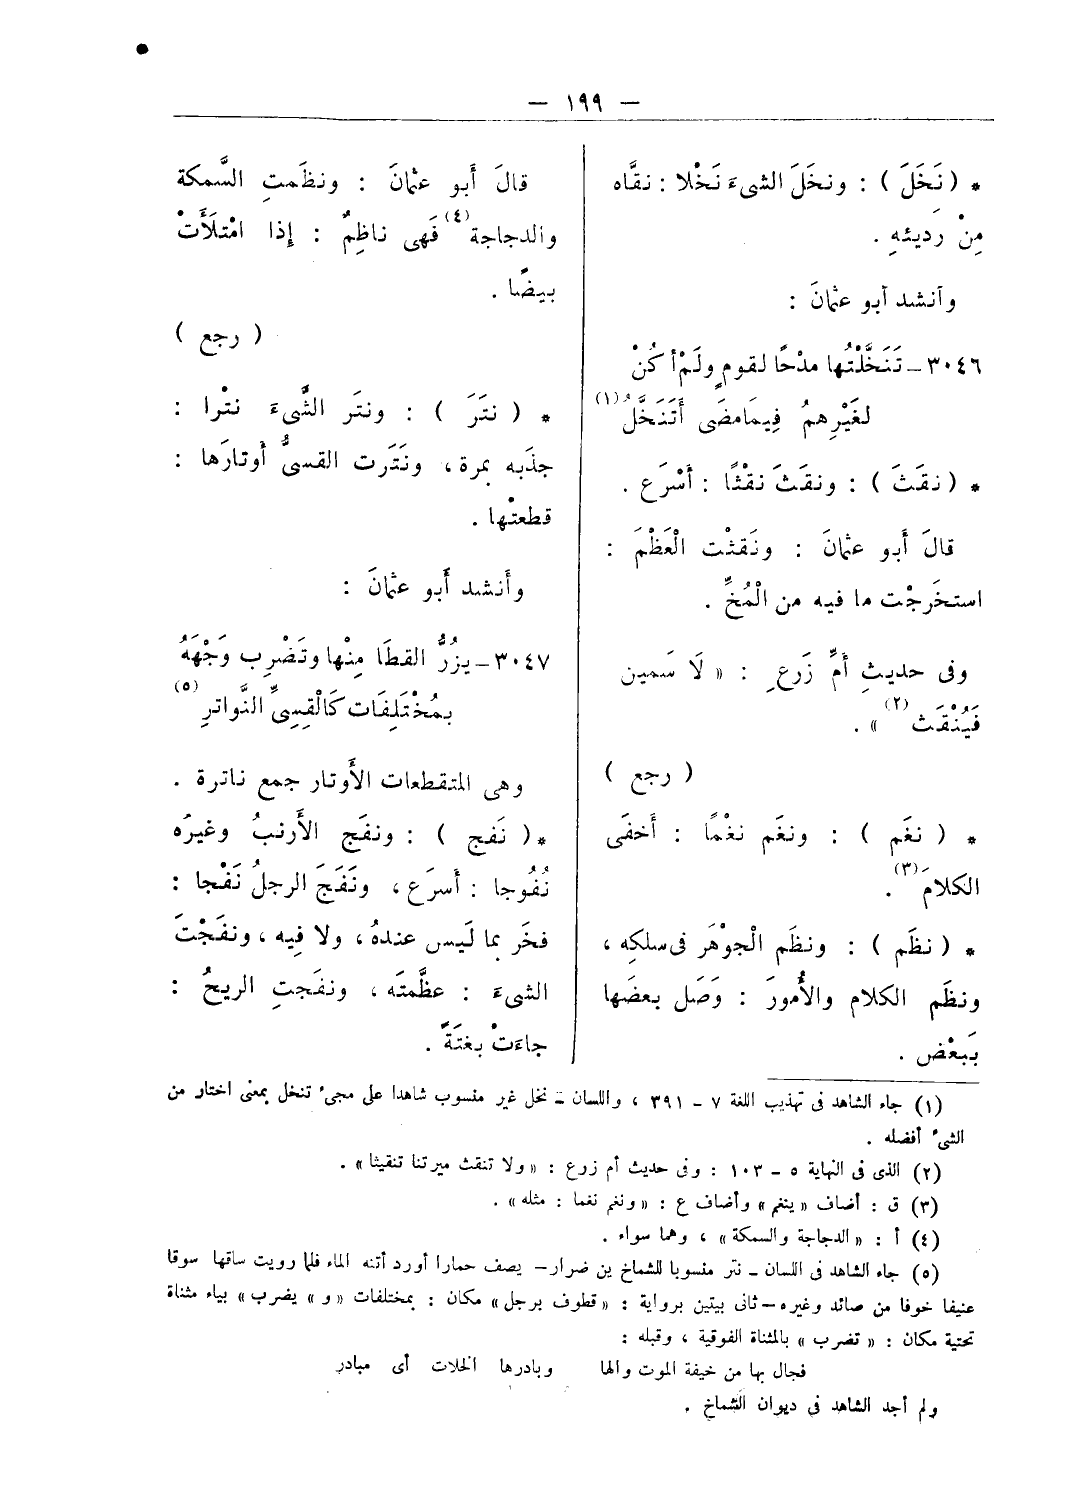 — ١٩٩ —
* ( نَخَلَ ) : ونخَلَ الشىءَ نَخْلا : نقَّاه
مِنْ رديئهِ .
وأنشد أبو عثمانَ :
٣٠٤٦ – تَنَخَّلْتُها مدْحًا لقومٍ ولَمْ أكُنْ
لغَيْرِهمُ فِيمَامضَى أَتَنَخَّلُ (١)
* ( نقَثَ ) : ونقَثَ نقْثًا : أسْرَع .
قالَ أَبو عثمانَ : ونَقثْت الْعَظْمَ :
استخَرجْت ما فيه من الْمُخِّ .
وفى حديثِ أمِّ زَرعٍ : « لَا سَمين
فَيُنْقَث (٢) » .
( رجع )
* ( نغَم ) : ونغَم نغْمًا : أَخفَى
الكلامَ (٣) .
* ( نظَم ) : ونظَم الْجوْهَر فى سلكِه ،
ونظَم الكلام والأُمورَ : وَصَل بعضَها
بَبعْض .
قالَ أَبو عثمانَ : ونظَمتِ السَّمكة
والدجاجة (٤) فَهى ناظِمٌ : إِذا امْتلَأَتْ
بيضًا .
( رجع )
* ( نتَرَ ) : ونتَر الشَّىءَ نتْرا :
جذَبه بمرة ، ونَتَرت القسىُّ أوتارَها :
قطعتْها .
وأَنشد أَبو عثمانَ :
٣٠٤٧ – يزُرُّ القطَا مِنْها وتَضْرِب وَجْهَهُ
بمُخْتَلِفَات كَالْقِسِىِّ النَّواترِ (٥)
وهى المتقطعات الأَوتار جمع ناترة .
* ( نَفج ) : ونفَج الأَرنبُ وغيرَه
نُفُوجا : أسرَع ، ونَفَجَ الرجلُ نَفْجا :
فخَر بما لَيس عندهُ ، ولا فِيه ، ونفَجْتَ
الشىءَ : عظَّمتَه ، ونفَجتِ الريحُ :
جاءَتْ بغتَةً .
(١) جاء الشاهد فى تهذيب اللغة ٧ – ٣٩١ ، واللسان – نخل غير منسوب شاهدا على مجىء تنخل بمعنى اختار من
الشىء أفضله .
(٢) الذى فى النهاية ٥ – ١٠٣ : وفى حديث أم زرع : « ولا تنقث ميرتنا تنقيثا » .
(٣) ق : أضاف « ينغم » وأضاف ع : « ونغم نغما : مثله » .
(٤) أ : « الدجاجة والسمكة » ، وهما سواء .
(٥) جاء الشاهد فى اللسان – نتر منسوبا للشماخ بن ضرار – يصف حمارا أورد أتنه الماء فلما رويت ساقها سوقا
عنيفا خوفا من صائد وغيره – ثانى بيتين برواية : « قطوف برجل » مكان : بمختلفات « و » يضرب » بياء مثناة
تحتية مكان : « تضرب » بالمثناة الفوقية ، وقبله :
فجال بها من خيفة الموت والها وبادرها الخلات أى مبادر
ولم أجد الشاهد فى ديوان الشماخ .